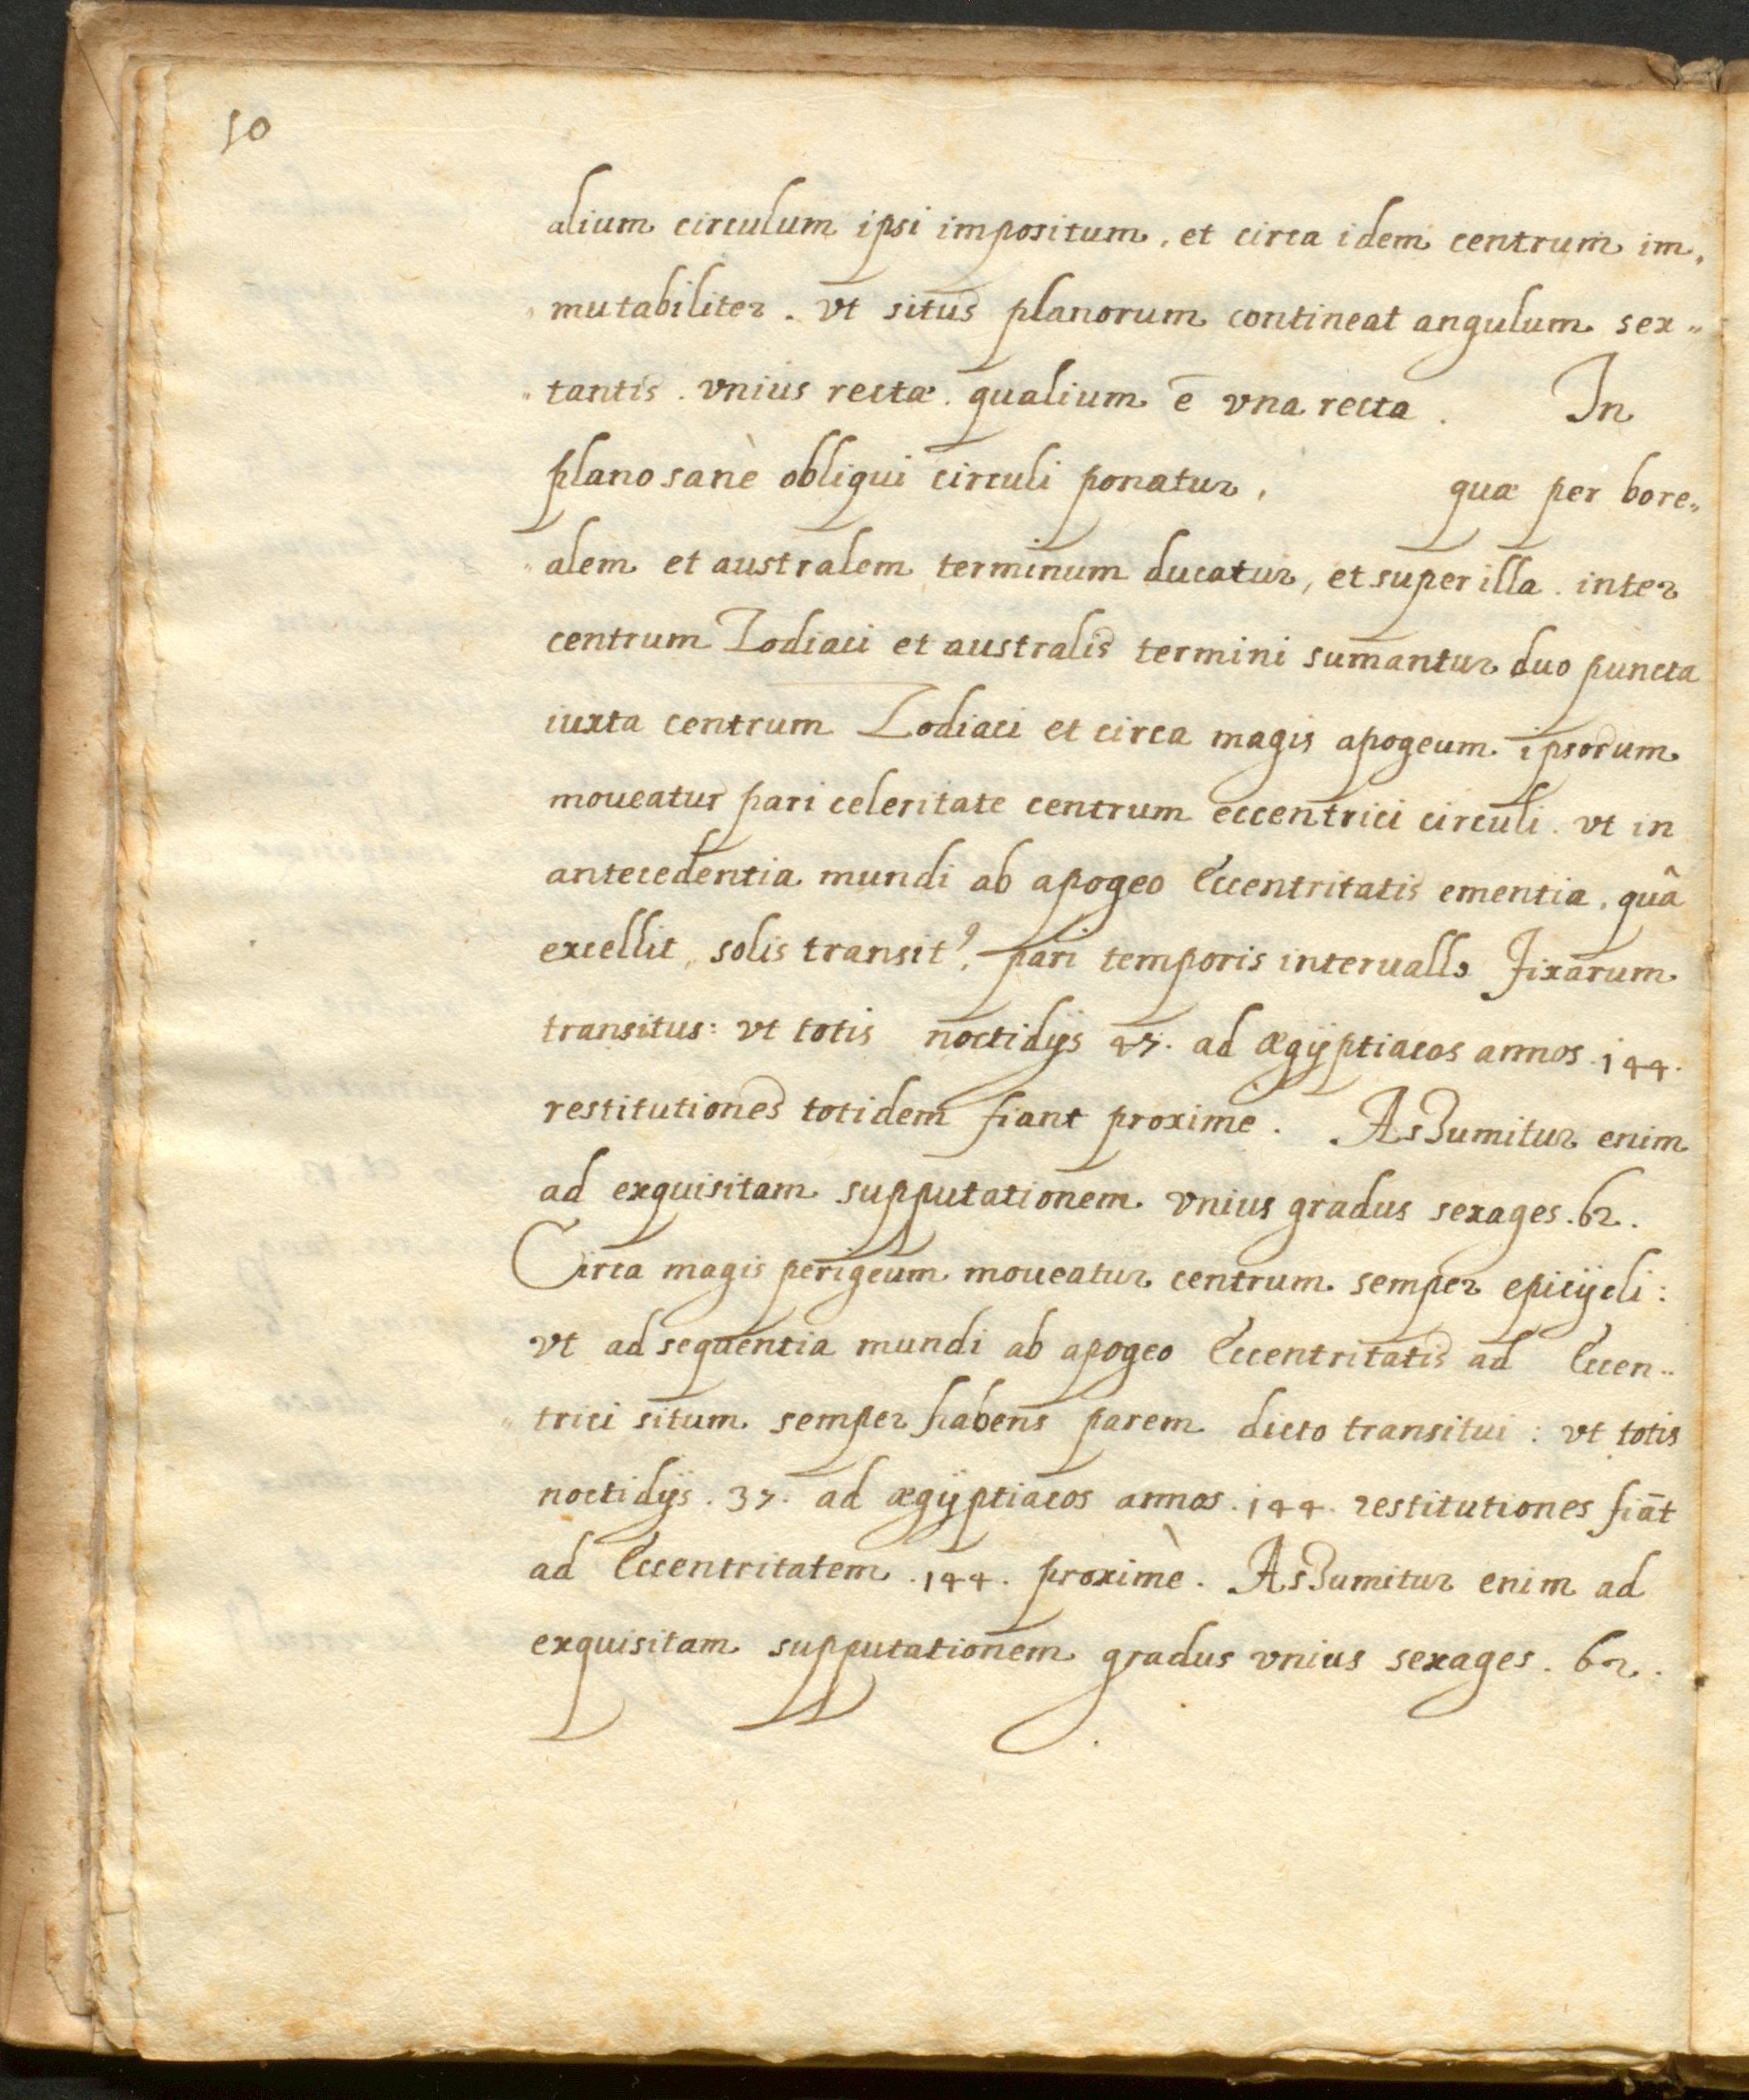 50
alium circulum ipsi impositum, et circa idem centrum im,
mutabiliter. vt situs planorum contineat angulum sex„
„tantis. vnius rectæ. qualium ē vna recta. In
plano sanè obliqui circuli ponatur, quæ per bore„
„alem et australem terminum ducatur, et super illa. inter
centrum Zodiaci et australis termini sumantur duo puncta
iuxta centrum Zodiaci et circa magis apogeum ipsorum
moueatur pari celeritate centrum eccentrici circuli. vt in
antecedentia mundi ab apogeo Eccentritatis ementia, quâ
excellit, solis transit9, pari temporis interuallo fixarum
transitus: vt totis noctidijs 47. ad ægÿptiacos annos .144.
restitutiones totidem fiant proxime. Assumitur enim
ad exquisitam supputationem vnius gradus sexages. 62.
Circa magis perigeum moueatur centrum semper epicÿcli:
vt ad sequentia mundi ab apogeo Eccentritatis ad Eccen„
„trici situm semper habens parem dicto transitui: vt totis
noctidijs. 37. ad ægÿptiacos annos. 144. restitutiones fiāt
ad Eccentritatem .144. proximè. Assumitur enim ad
exquisitam supputationem gradus vnius sexages. 62.